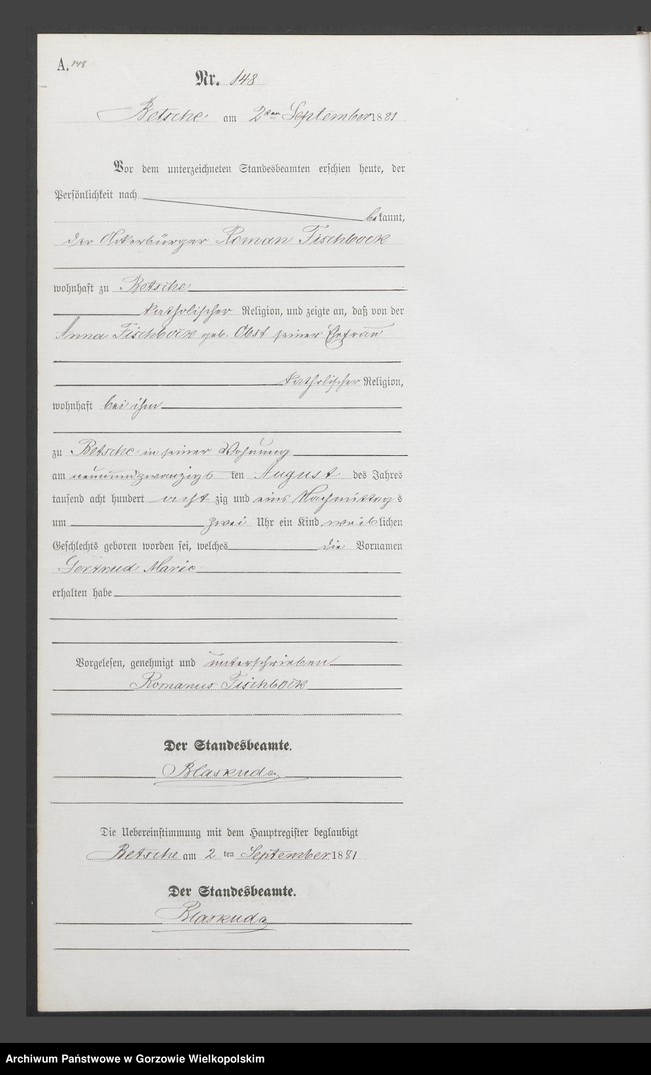 A. 148
Nr. 148
Betsche am 2ten September 1881
Vor dem unterzeichneten Standesbeamten erschien heute, der
Persönlichkeit nach
bekannt,
der Ackerbürger Roman Fischbock
wohnhaft zu Betsche
katholischer Religion, und zeigte an, daß von der
Anna Fischbock geb. Obst seiner Ehefrau
katholischer Religion,
wohnhaft bei ihm
zu Betsche in seiner Wohnung
am neunundzwanzigsten August des Jahres
tausend acht hundert acht zig und eins Nachmittags
um zwei Uhr ein Kind weiblichen
Geschlechts geboren worden sei, welches die Vornamen
Gertrud Marie
erhalten habe
Vorgelesen, genehmigt und unterschrieben
Romanus Fischbock
Der Standesbeamte.
Blaskuda
Die Uebereinstimmung mit dem Hauptregister beglaubigt
Betsche am 2 ten September 1881
Der Standesbeamte.
Blaskuda
Archiwum Państwowe w Gorzowie Wielkopolskim